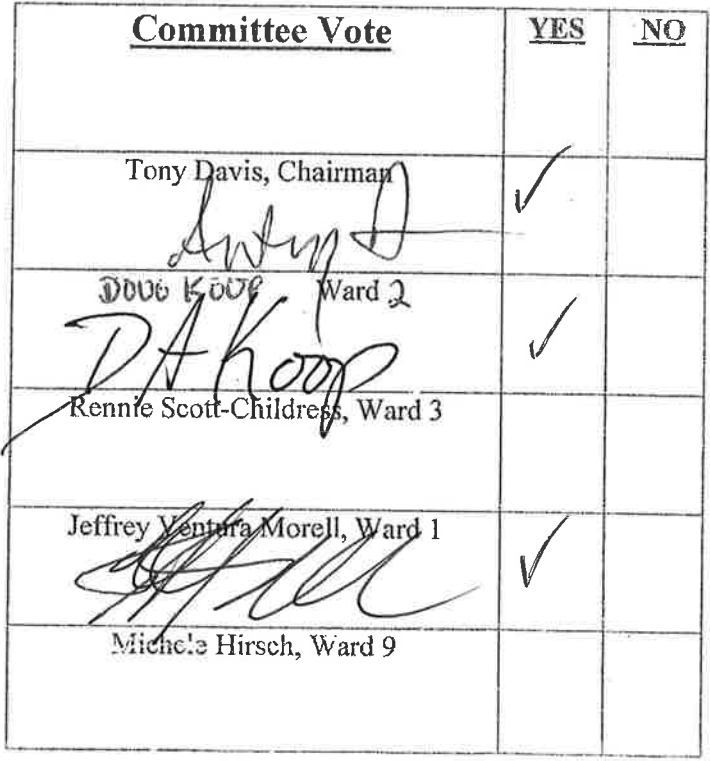 Committee Vote YES NO
Tony Davis, Chairman ✓
DOUG KOOP Ward 2 ✓
D A Koop
Rennie Scott-Childress, Ward 3
Jeffrey Ventura Morell, Ward 1 ✓
Michele Hirsch, Ward 9